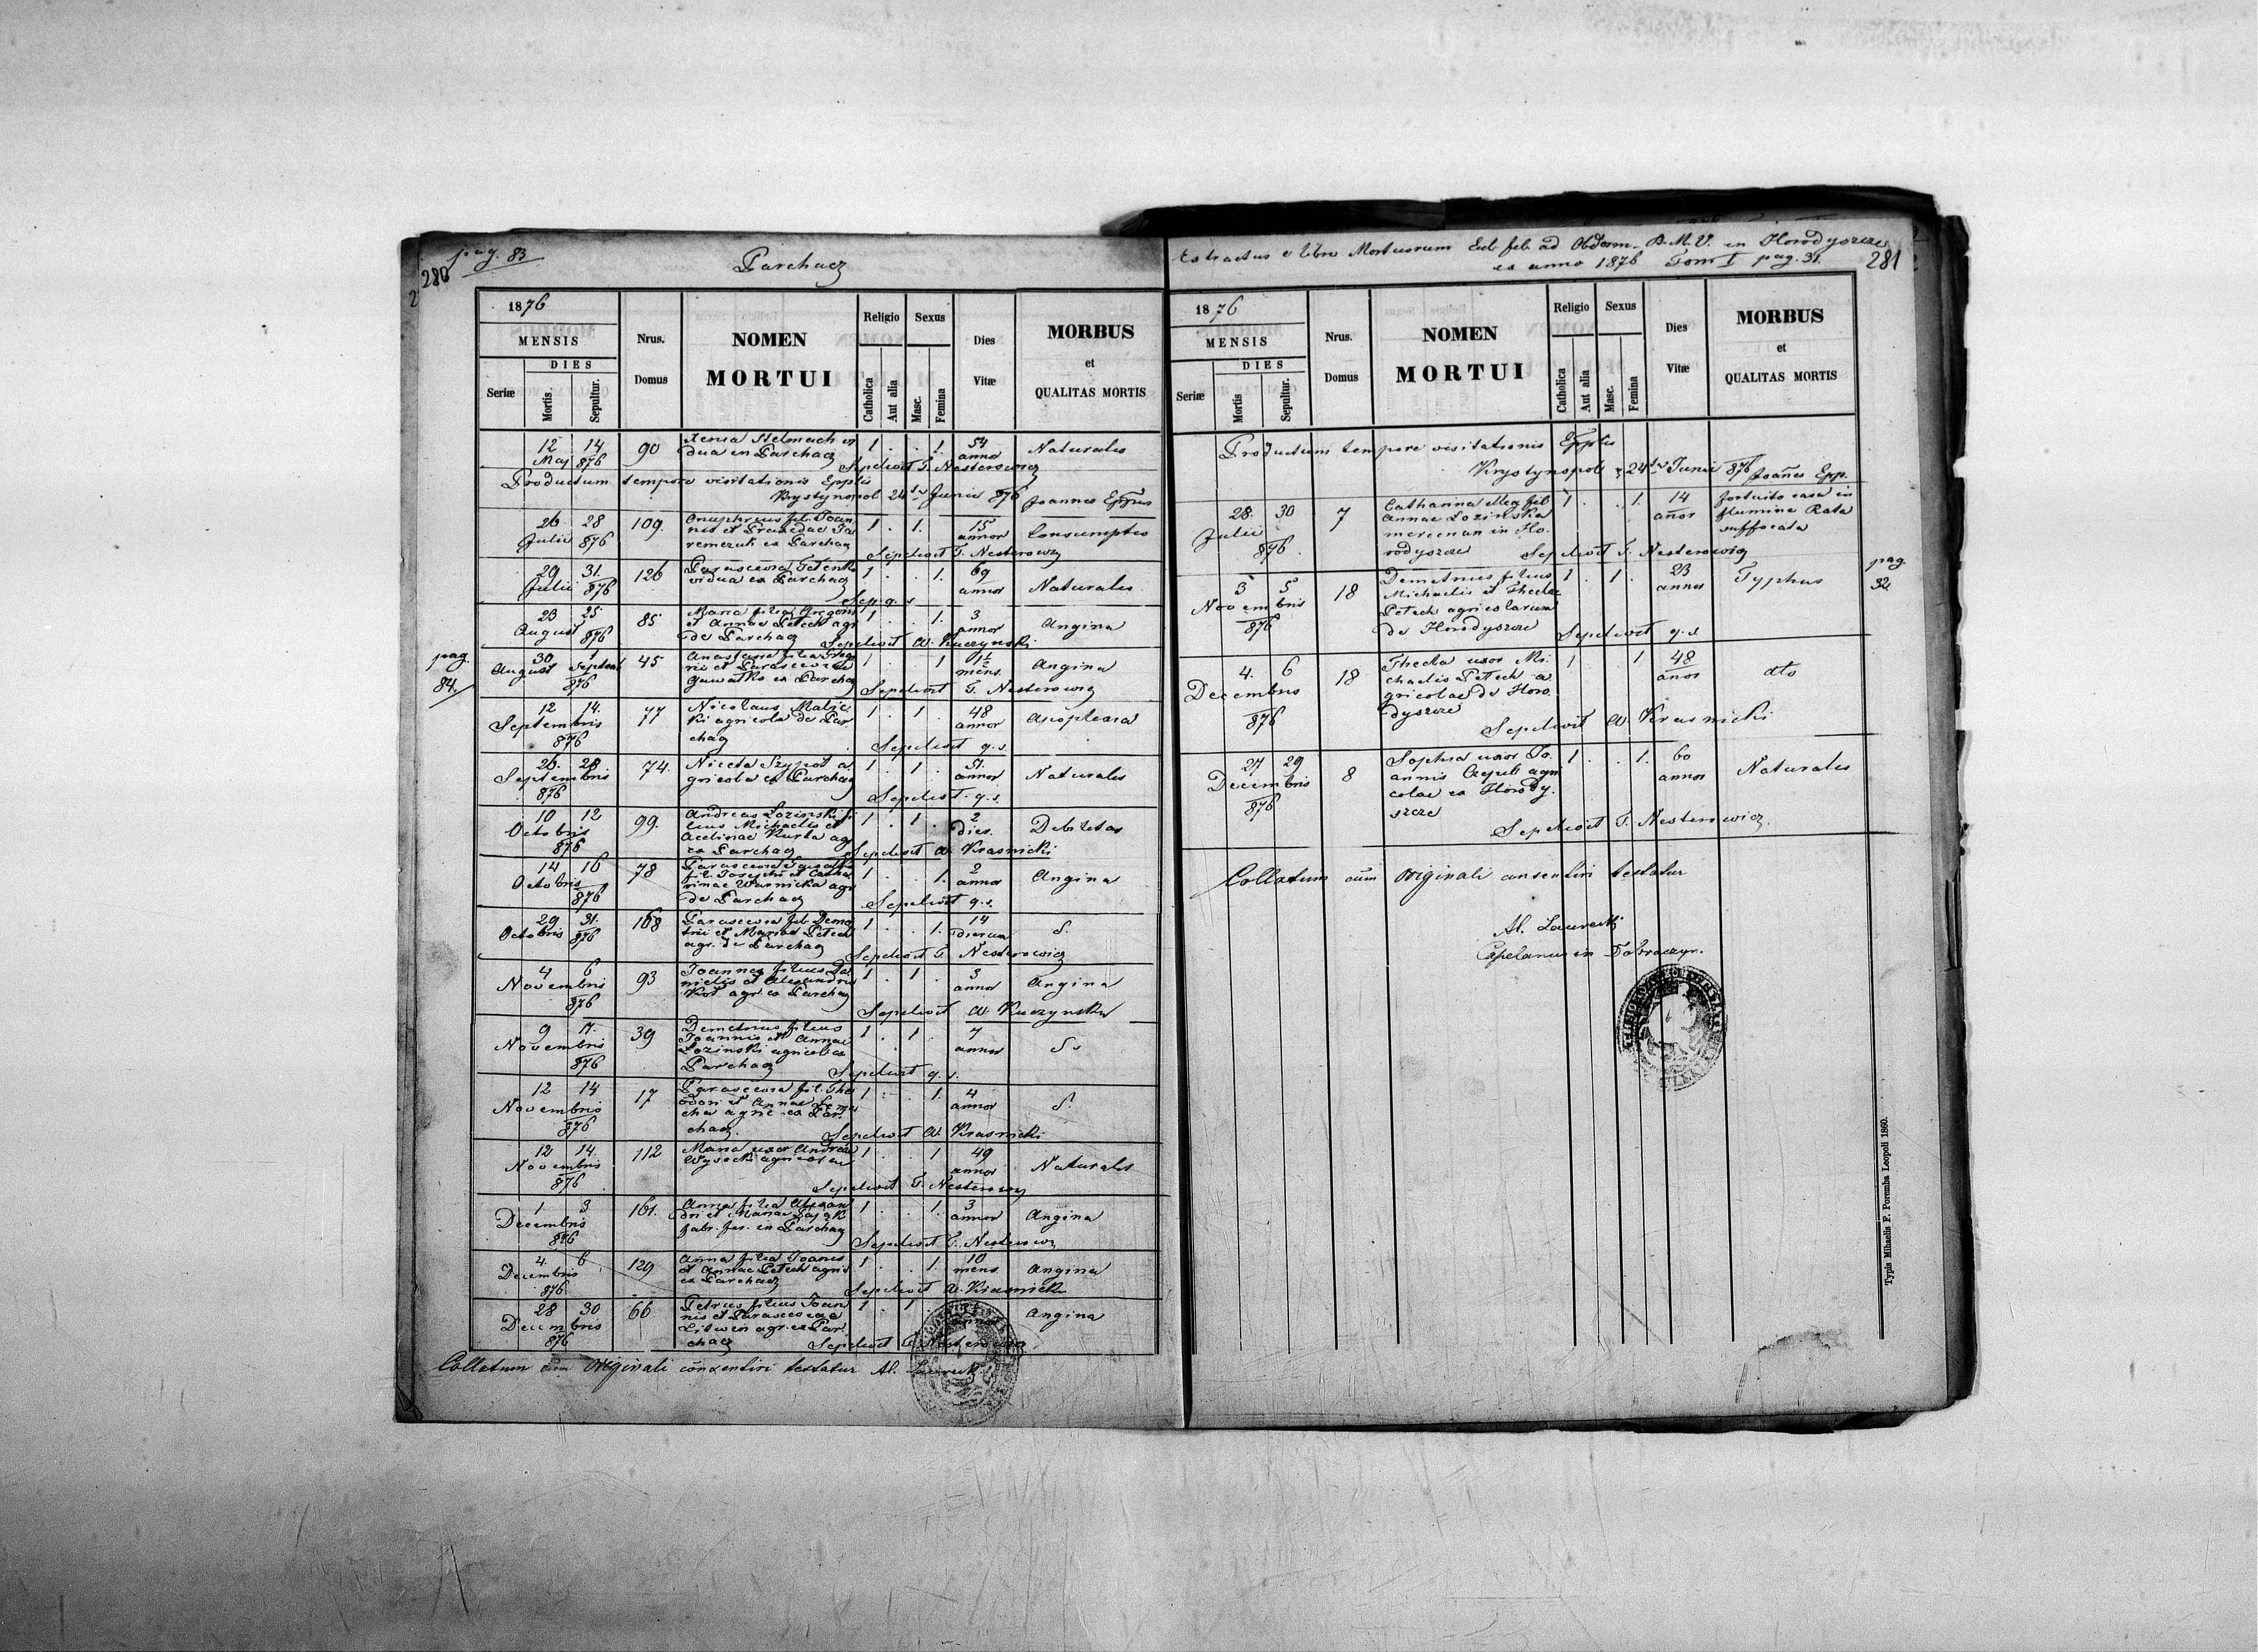 pag. 83
280
Parchacz
1876
MENSIS
DIES
Seriæ
Mortis
Sepultur.
Nrus.
Domus
NOMEN
MORTUI
Religio
Catholica
Aut alia
Sexus
Masc.
Femina
Dies
Vitæ
MORBUS
et
QUALITAS MORTIS
12 14 90 Xenia Stelmach vi 1 . . 1. 54 Naturalis
Maj 876 dua in Parchacz annor
Sepelivit T. Nesterowicz
Productum tempore visitationis Epplis
Krystynopol 24 Junii 876 Joannes Eppus
26 28 109. Onuphrius fil. Joan 1 . 1. 15 Consumptio
Julii 876 nis et Praxedae Ja annor
remczuk ex Parchacz
Sepelivit T. Nesterowicz
29 31. 126 Parascevia 1 . . 1. 69 Naturalis
Julii 876 vidua ex Parchacz annor
Sep. q. s
23 25 85 Maria filia Gregorii 1 . . 1. 3 Angina
August 876 et Annae Petech agr annor
de Parchacz
Sepelivit A. Kuczynski
pag.
84.
30 1 45 Anastasia filia 1 . . 1 1½ Angina
August Septem 876 nis et Parasceviae mens.
Gawalko ex Parchacz
Sepelivit T. Nesterowicz
12 14. 77 Nicolaus Malic 1 . 1 . 48 Apoplexia
Septembris ki agricola de Par annor
876 chacz
Sepelivit q. s.
26. 28 74. Niceta Szypot a 1 . 1 . 51. Naturalis
Septembris gricola ex Parchacz annor
876
Sepelivit q. s.
10 12 99. Andreas Lozinski fi 1 . 1 . 2 Debilitas
Octobris lius Michaelis et dies.
876 Kurta agr
ex Parchacz
Sepelivit A. Krasnicki
14 16 78 Parascevia 1 . . 1. 2 Angina
Octobris fil. Josephi et Catha annor
876 rinae Warnicka agr
de Parchacz
Sepelivit q. s.
29 31. 168 Parascevia fil. Deme 1 . . 1. 14 d.
Octobris 876 trii et Mariae Petech dierum
agr. de Parchacz
Sepelivit T. Nesterowicz
4 6 93 Joannes filius Da 1 . 1 . 3 Angina
Novembris nielis et Alexandra annor
876 Kot agr ex Parchacz
Sepelivit A. Kuczynski
9 11. 39 Demetrius filius 1 . 1 . 7
Novembris Joannis et Annae annor
876 Lozinski agricol ex
Parchacz
Sepelivit q. s.
12 14 17 Parascevia fil. Theo 1 . . 1. 4 d.
Novembris dori et Annae annor
876 cha agric ex Par
chacz.
Sepelivit A. Krasnicki
12 14. 112 Maria uxor Andreae 1 . . 1 49 Naturalis
Novembris Wysocki agricolae annor
876
Sepelivit T. Nesterowicz
1 3 161. Anna filia Alexan 1 . . 1. 3 Angina
Decembris dri et Mariae annor
876 fabr. fer. in Parchacz
Sepelivit T. Nesterowicz
4. 6 129 Anna filia Joanis 1 . . 1. 10 Angina
Decembris et Annae Petech agric mens
876 ex Parchacz
Sepelivit A. Krasnicki
28 30 66 Petrus filius Joan 1 . 1 Angina
Decembris nis et Parasceviae
876 Litwin agr. ex Par
chacz
Sepelivit T. Nesterowicz
Collatum cum originali consentiri testatur Al. Laurecki
Extractus e libro Mortuorum Eccl. fil. ad Obdorm. B. M. V. in Horodyszcze
ex anno 1876 Tom I pag. 31.
281
1876
MENSIS
DIES
Seriæ
Mortis
Sepultur.
Nrus.
Domus
NOMEN
MORTUI
Religio
Catholica
Aut alia
Sexus
Masc.
Femina
Dies
Vitæ
MORBUS
et
QUALITAS MORTIS
Productum tempore visitationis Epplis
Krystynopol 24 Junii 876 Joannes Epp.
28. 30 7 Catharina illeg fil 1 . . 1. 14 fortuito casu in
Julii Annae Lozinska annor flumine Rata
876. mercenar in Ho. suffocata
rodyszcze Sepelivit T. Nesterowicz
3 5 18 Demetrius filius 1 . 1 . 23 Typhus
Novembris Michaelis et Theclae annor
876 Petech agricolarum
de Horodyszcze
Sepelivit q. s
pag.
32
4. 6 18 Thecla uxor Mi 1 . . 1 48 dto
Decembris chaelis Petech a annor
876 gricolae de Horo.
dyszcze
Sepelivit A. Krasnicki
27 29 8 Sophia uxor Jo 1 . . 1. 60 Naturalis
Decembris annis agri annor
876 colae ex Horody.
szcze
Sepelivit T. Nesterowicz.
Collatum cum originali consentiri testatur
Al. Laurecki
Capelanus in Dobraczyn.
Typis Mihaelis F. Poremba Leopoli 1860.